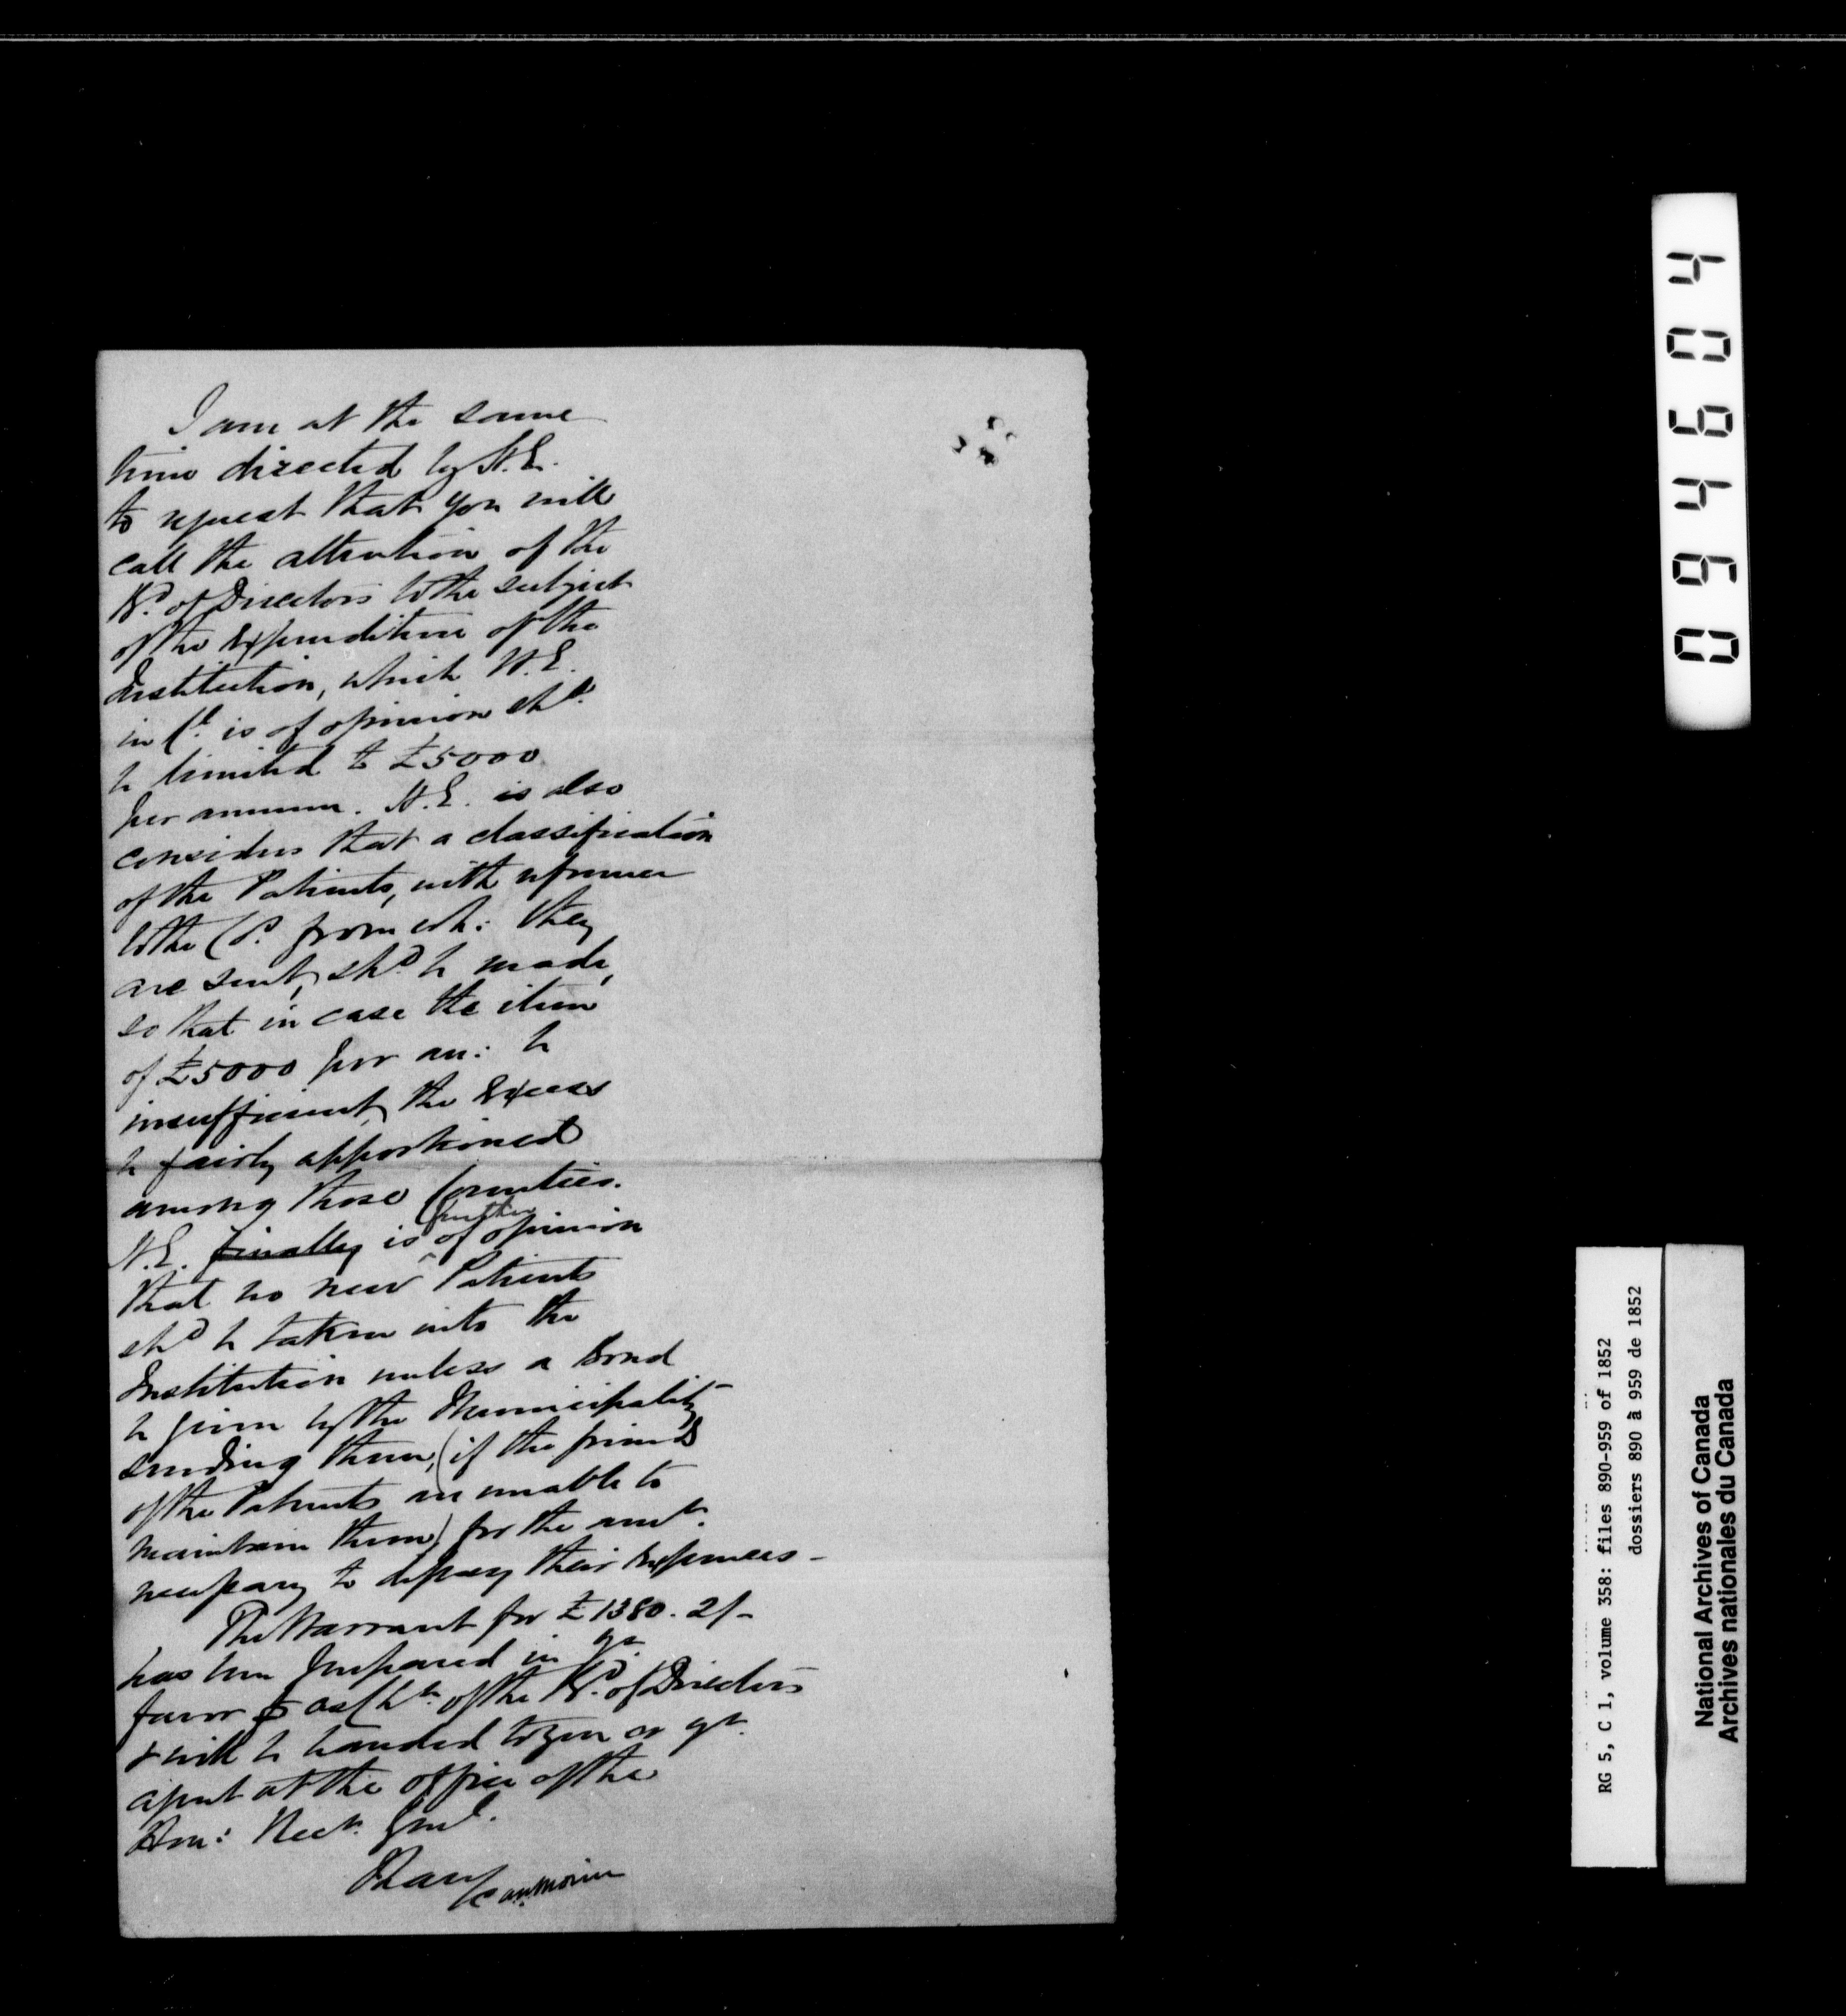 I am at the same
time directed by H.E.
to request that you will
call the attention of the
Bd. of Directors to the subject
of the Expenditure of the
Institution, which H.E.
in Cl. is of opinion shd.
be limited to £5000
per annum. H.E. is also
considers that a classification
of the Patients, with reference
to the Co. from wh: they
are sent, shd be made,
so that in case the item
of £5000 per an: be
insufficient, the Excess
be fairly apportioned
among those Counties.
further
H.E. finally is of opinion
that no new Patients
shd be taken into the
Institution unless a Bond
be given by the Municipality
sending them, (if the friends
of the Patients are unable to
maintain them) for the amt.
necessary to defray their Expenses -
The Warrant for £1380. 2/-
has been prepared in yr.
favor as Chn. of the Bd. of Directors
& will be handed to you or yr.
agent at the office of the
Hon: Recr. Genl.
I have
&c AN Morin
094604
RG 5, C 1, volume 358: files 890-959 of 1852
dossiers 890 à 959 de 1852
National Archives of Canada
Archives nationales du Canada